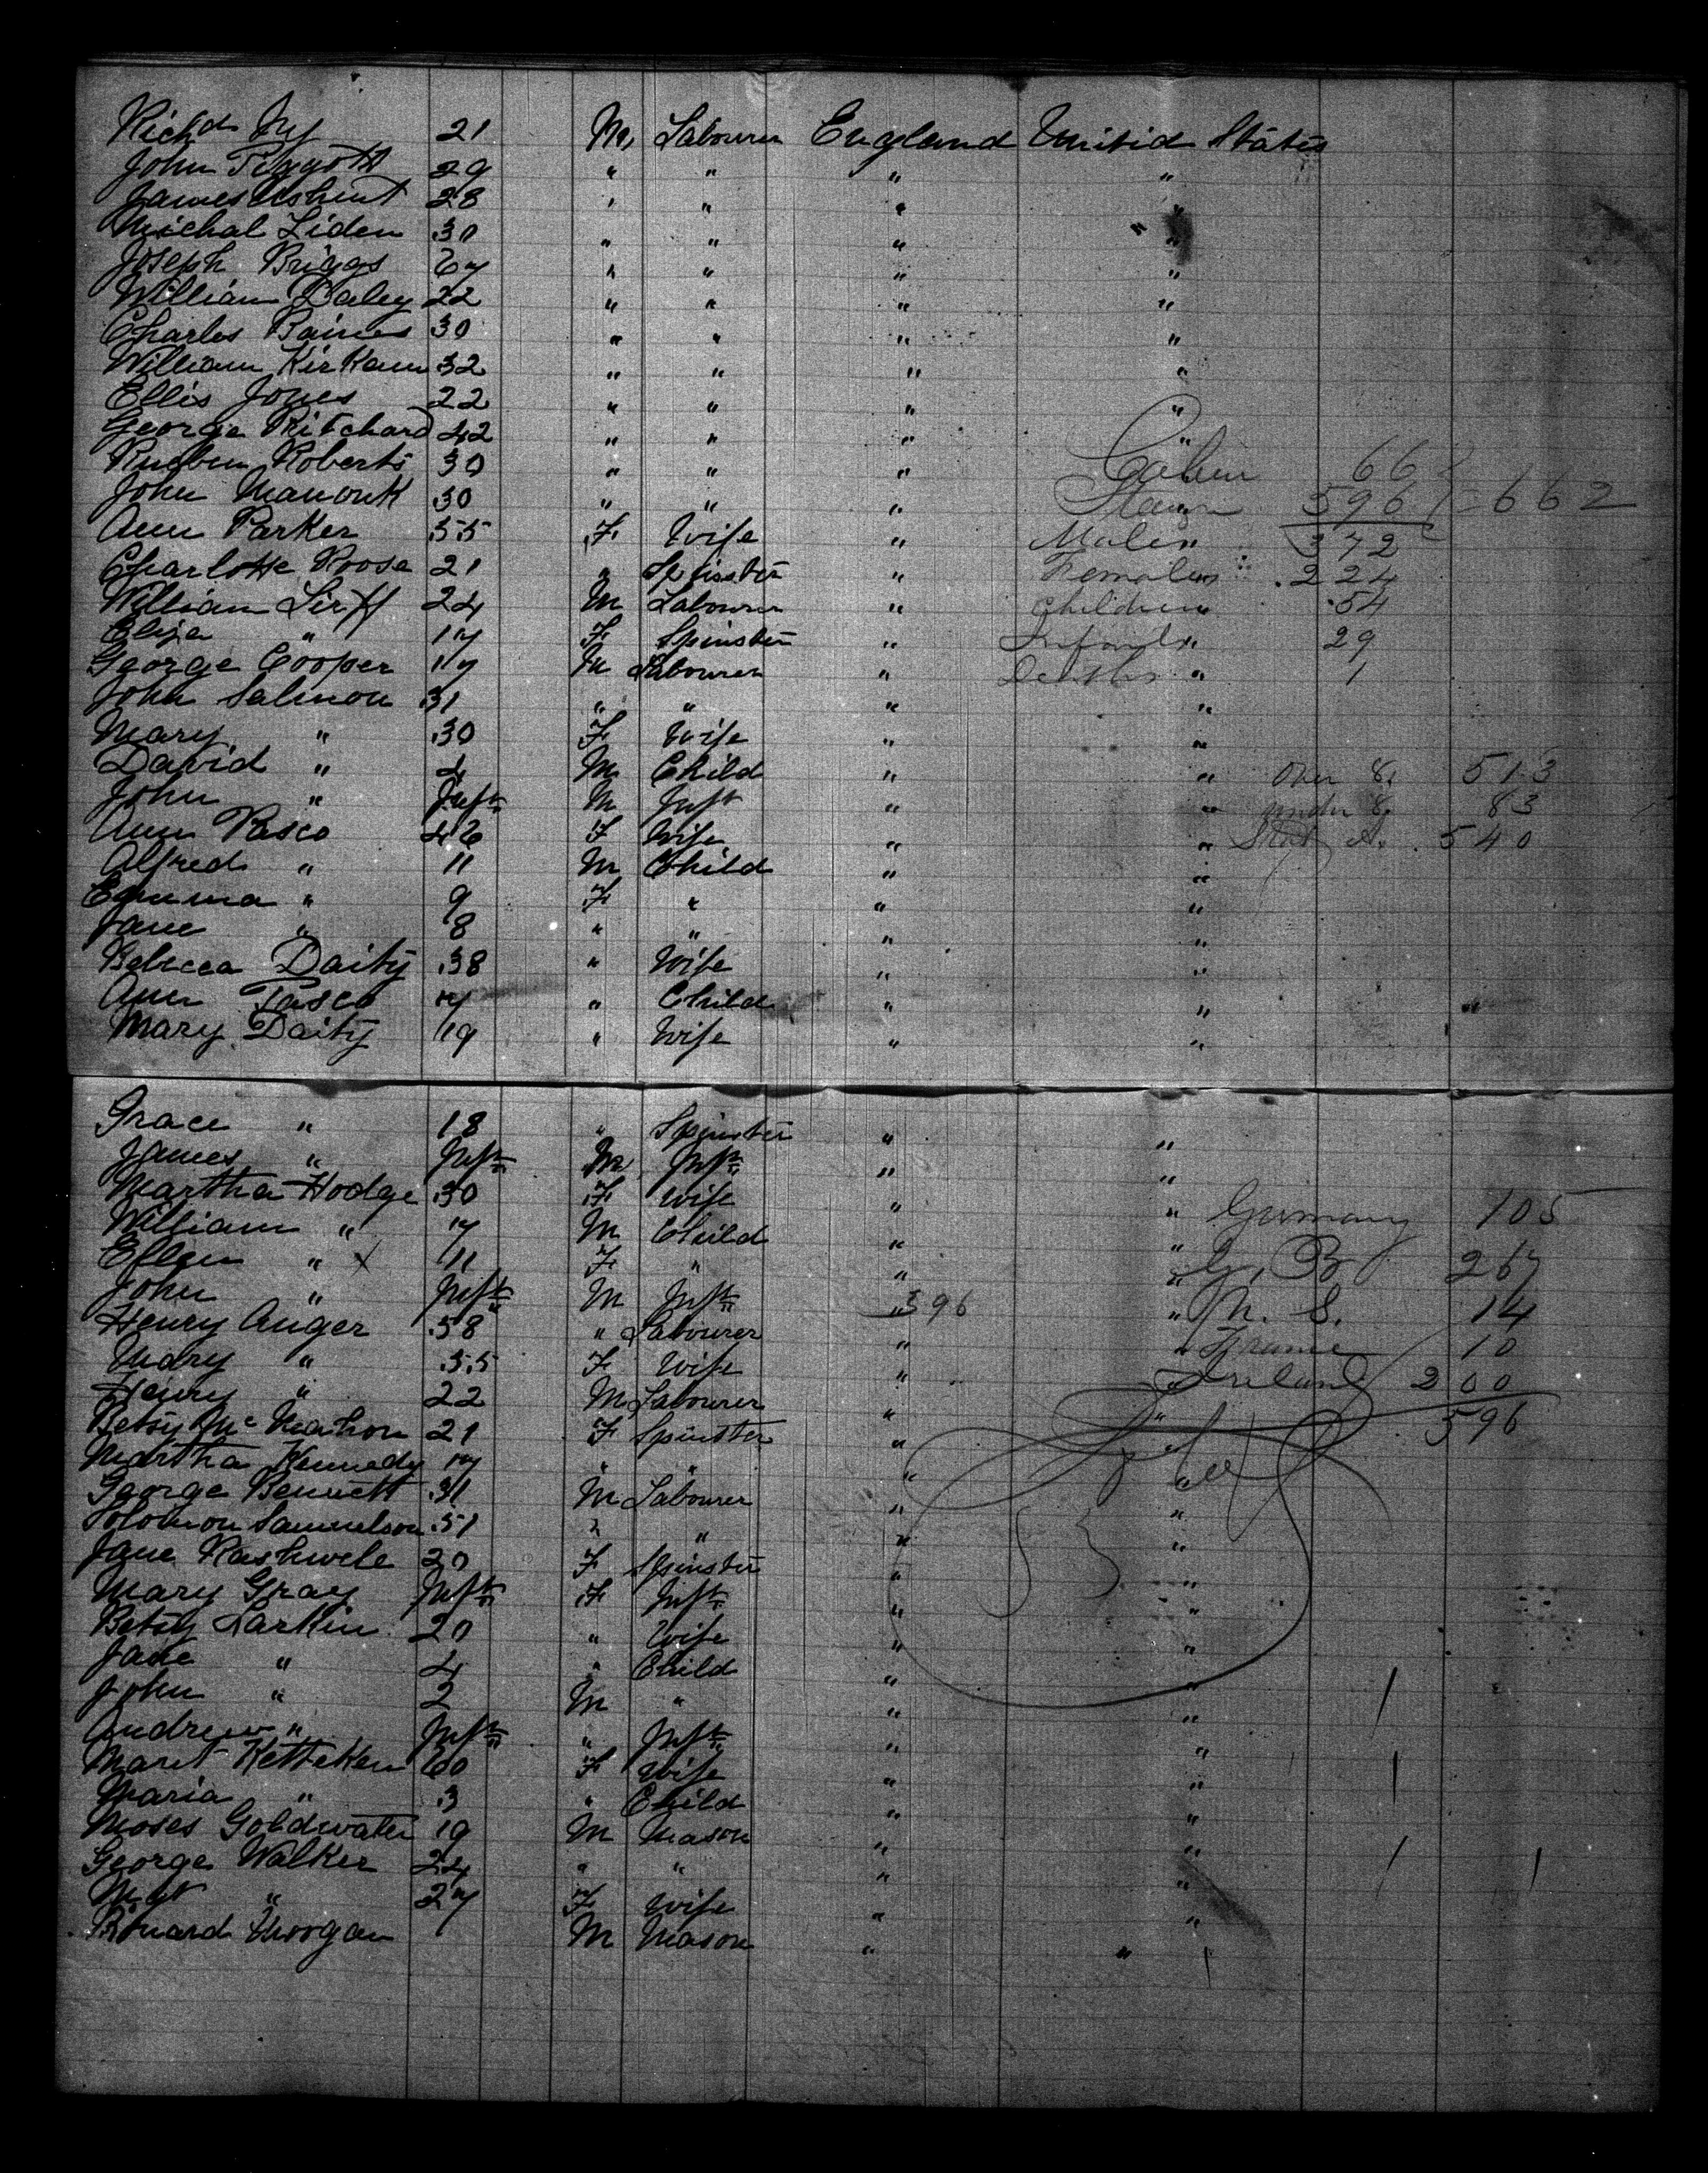 Richd Ny 21 M, Labourer England United States
John Piggott 29 " " " "
James Ashurst 28 " " " "
Michal Liden 30 " " " "
Joseph Briggs 67 " " " "
William Daley 22 " " " "
Charles Baines 30 " " " "
William Kirkam 32 " " " "
Ellis Jones 22 " " " "
George Pritchard 42 " " " "
Rueben Roberts 30 " " " " Cabin 66
John 30 " " " " 596 = 662
Ann Parker 55 F Wife " " Males 372
Charlotte Roose 21 " Spinster " " Females 224
William 24 M Labourer " " Children 54
Eliza " 17 F Spinster " " Infants 29
George Cooper 19 M Labourer " " Deaths 1
John Salmon 31 " " " "
Mary " 30 F Wife " "
David " 4 M Child " " over 8. 513
John " Inft M Inft " " under 8. 83
Ann Pasco 46 F Wife " " A. 540
Alfred " 11 M Child " "
Emma " 9 F " " "
Jane " 8 " " " "
Rebecca Daity 38 " Wife " "
Ann Pasco 7 " Child " "
Mary Daity 19 " Wife " "
Grace " 18 " Spinster " "
James " Inft M Inft " "
Martha Hodge 30 F Wife " " Germany 105
William " 7 M Child " " G. B 267
Ellen " x 11 F " " "
John " Inft M Inft " 596 " N. S. 14
Henry Auger 58 " Labourer " " France 10
Mary " 55 F Wife " " Ireland 200
Henry " 22 M Labourer " " 596
Betsy McMahon 21 F Spinster " "
Martha Kennedy 17 " " " "
George Bennett 31 M Labourer " "
Solomon Samuelson 51 " " " "
Jane Rashwele 20 F Spinster " "
Mary Gray Inft F Inft " "
Betsy Larkin 20 " Wife " "
Jane " 4 " Child " "
John " 2 M " " "
Andrew " Inft " Inft " "
Maret Ketteken 60 F Wife " "
Maria " 3 " Child " "
Moses Goldwater 19 M Mason " "
George Walker 24 " " " "
" 27 F Wife " "
M Mason " "